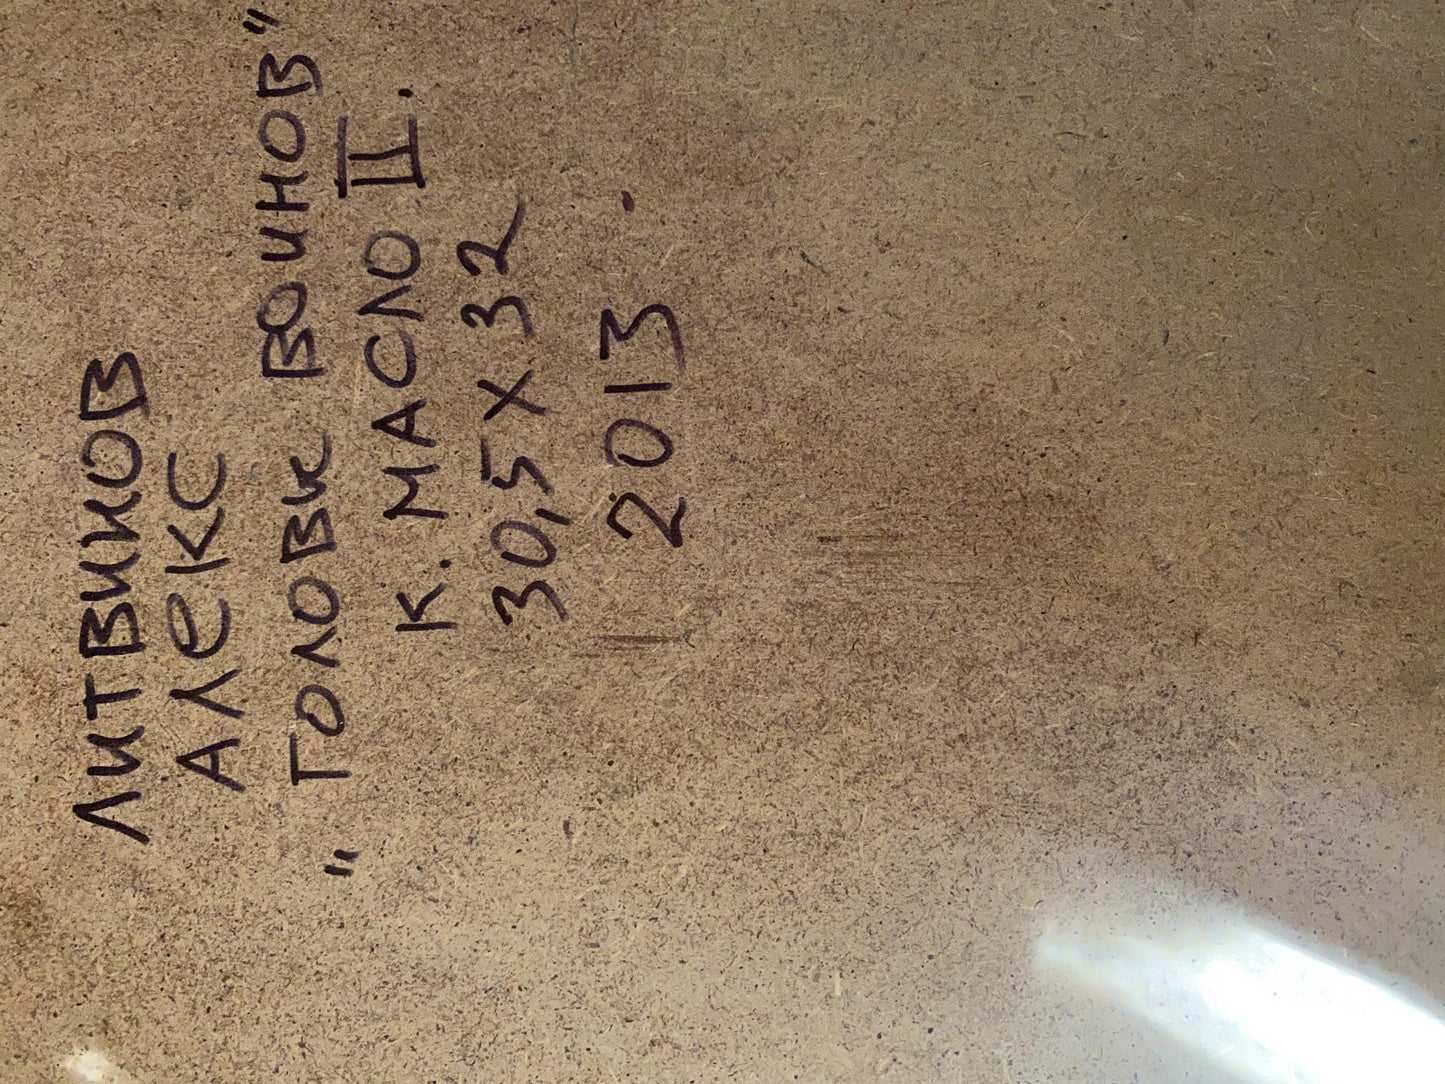 ЛИТВИНОВ
АЛЕКС
"ГОЛОВЫ ВОИНОВ"
II.
К. МАСЛО
30,5 X 32
2013